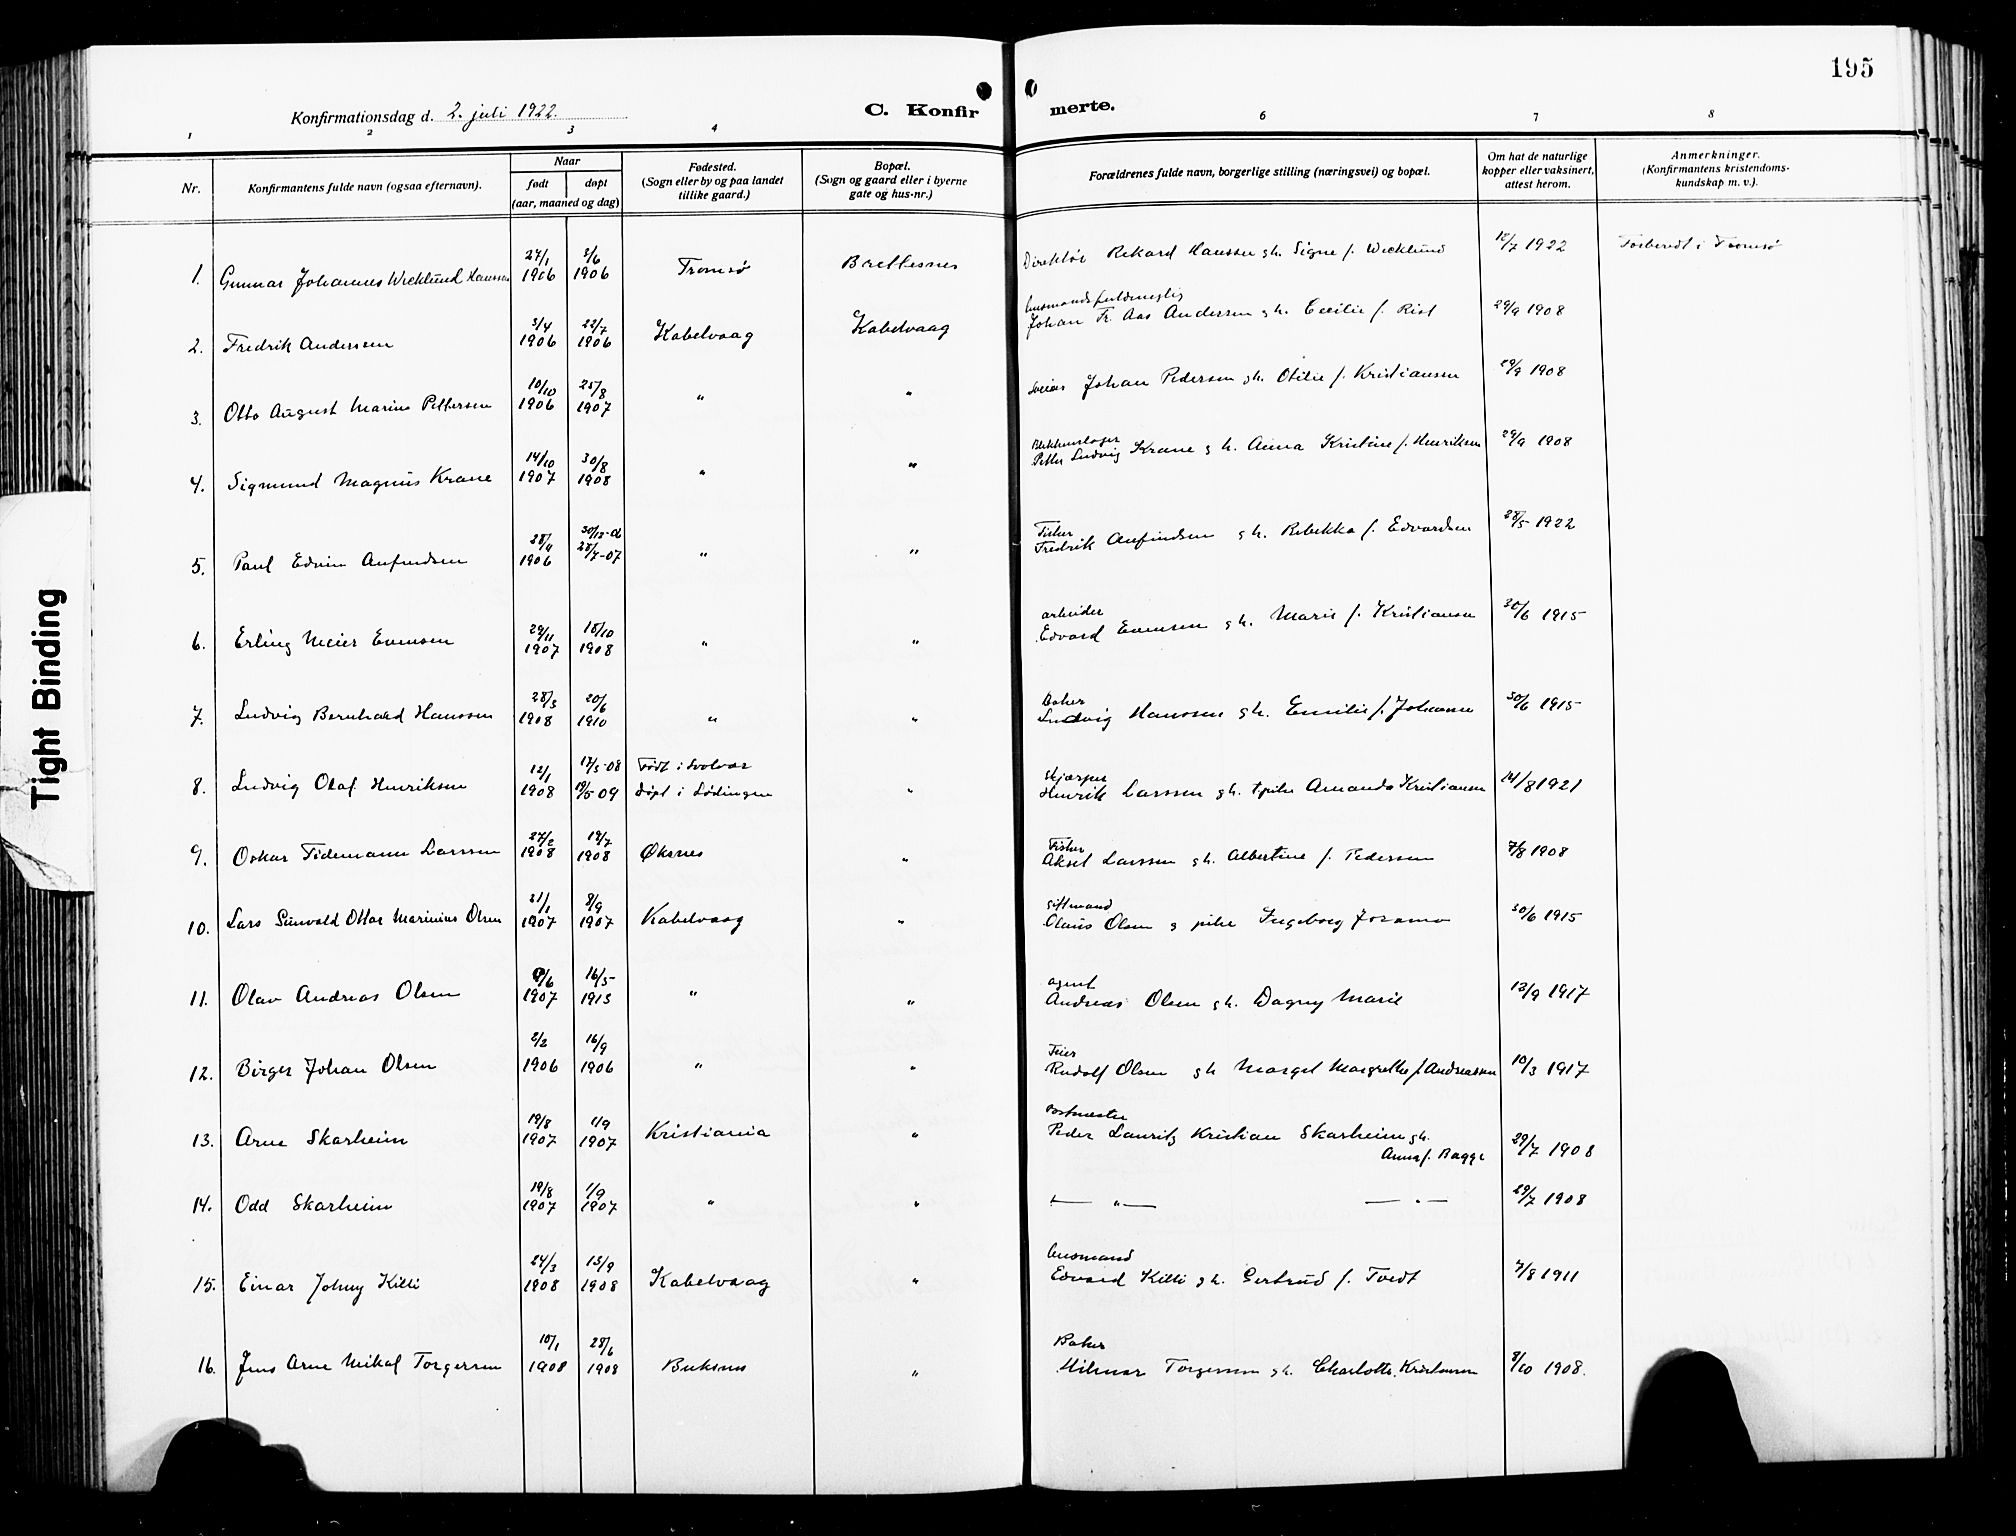 195
Konfirmationsdag d. 2. juli 1922.
C. Konfirmerte.
1 2 3 4 6 7 8
Nr.
Konfirmantens fulde navn (ogsaa efternavn).
Naar
født døpt
(aar, maaned og dag)
Fødested.
(Sogn eller by og paa landet
tillike gaard.)
Bopæl.
(Sogn og gaard eller i byerne
gate og hus-nr.)
Forældrenes fulde navn, borgerlige stilling (næringsvei) og bopæl.
Om hat de naturlige
kopper eller vaksinert,
attest herom.
Anmerkninger.
(Konfirmantens kristendoms-
kundskap m. v.).
1. Gunnar Johannes Wicklund Hanssen 27/1 1906 3/6 1906 Tromsø Brettesnes Direktør Rikard Hanssen gh. Signe f. Wicklund 12/7 1922 Forberedt i Tromsø
2. Fredrik Andersen 3/4 1906 22/7 1906 Kabelvaag Kabelvaag
Johan Fr. Aas Andersen gh. Cecilie f. Rist 29/9 1908
3. Otto August Marius Pettersen 10/10 1906 25/8 1907 " " Johan Pedersen gh. Otilie f. Kristiansen 29/9 1908
4. Sigmund Magnus Krane 14/10 1907 30/8 1908 " " Blikkenslager
Petter Ludvig Krane gh. Anna Kristine f. Henriksen 29/9 1908
5. Paul Edvin Anfindsen 28/4 1906 28/7-07 " " Fisker
Fredrik Anfindsen gh. Rebekka f. Edvardsen 28/5 1922
6. Erling Meier Evensen 29/11 1907 18/10 1908 " " arbeider
Edvard Evensen gh. Marie f. Kristiansen 30/6 1915
7. Ludvig Bernhard Hanssen 28/3 1908 20/6 1910 " " Baker
Ludvig Hanssen gh. Emilie f. Johansen 30/6 1915
8. Ludvig Olaf Henriksen 12/1 1908 17/5-08 19/5-09 Født i Svolvær
døpt i Lødingen "
Henrik Larssen gh. Amanda Kristiansen 14/8 1921
9. Oskar Tidemann Larssen 27/2 1908 19/7 1908 Øksnes " Fisker
Aksel Larssen gh. Albertine f. Pedersen 7/8 1908
10. Lars Sünvald Ottar Marinius Olsen 31/1 1907 8/9 1907 Kabelvaag " giftmand
Olaus Olsen g pike Ingeborg 30/6 1915
11. Olav Andreas Olsen 9/6 1907 16/5 1913 " " agent
Andreas Olsen gh. Dagny Marie 13/9 1917
12. Birger Johan Olsen 2/2 1906 16/9 1906 " " Feier
Rudolf Olsen gh Margit Margrethe f. Andreassen 10/3 1917
13. Arne Skarheim 19/8 1907 1/9 1907 Kristiania " Postmester
Peder Lauritz Kristian Skarheim gh.
Anna f. Bagge 29/7 1908
14. Odd Skarheim 19/8 1907 1/9 1907 " " — " — — " — 29/7 1908
15. Einar Johny Killi 24/3 1908 13/9 1908 Kabelvaag "
Edvard Killi gh. Gertrud f. Tvedt 7/8 1911
16. Jens Arne Mikal Torgersen 10/1 1908 28/6 1908 Buksnes " Baker
Hilmar Torgersen gh. Charlotte Kristiansen 8/10 1908.
Tight Binding